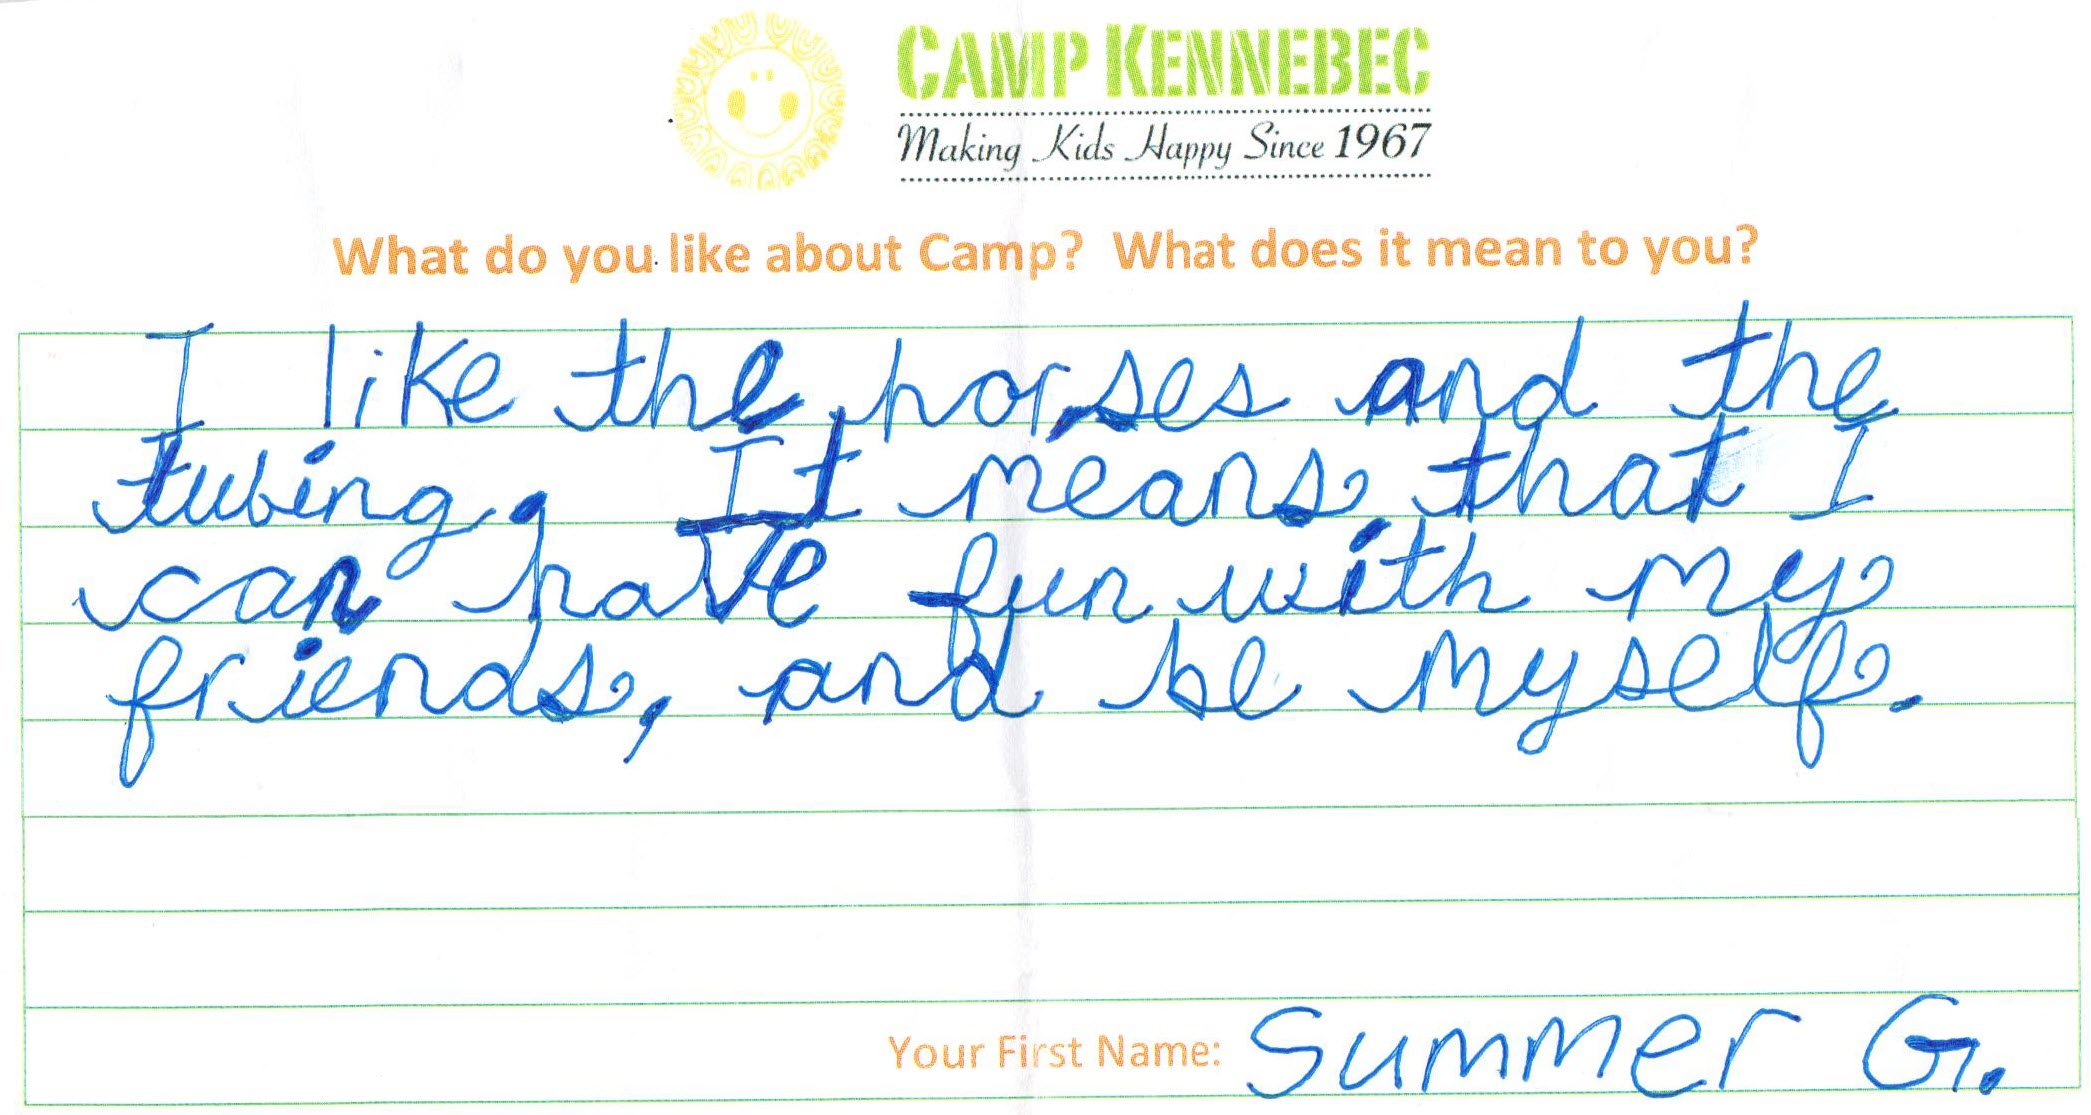 CAMP KENNEBEC
Making Kids Happy Since 1967
What do you like about Camp? What does it mean to you?
I like the horses and the
tubing. It means that I
can have fun with my
friends, and be myself.
Your First Name: Summer G.